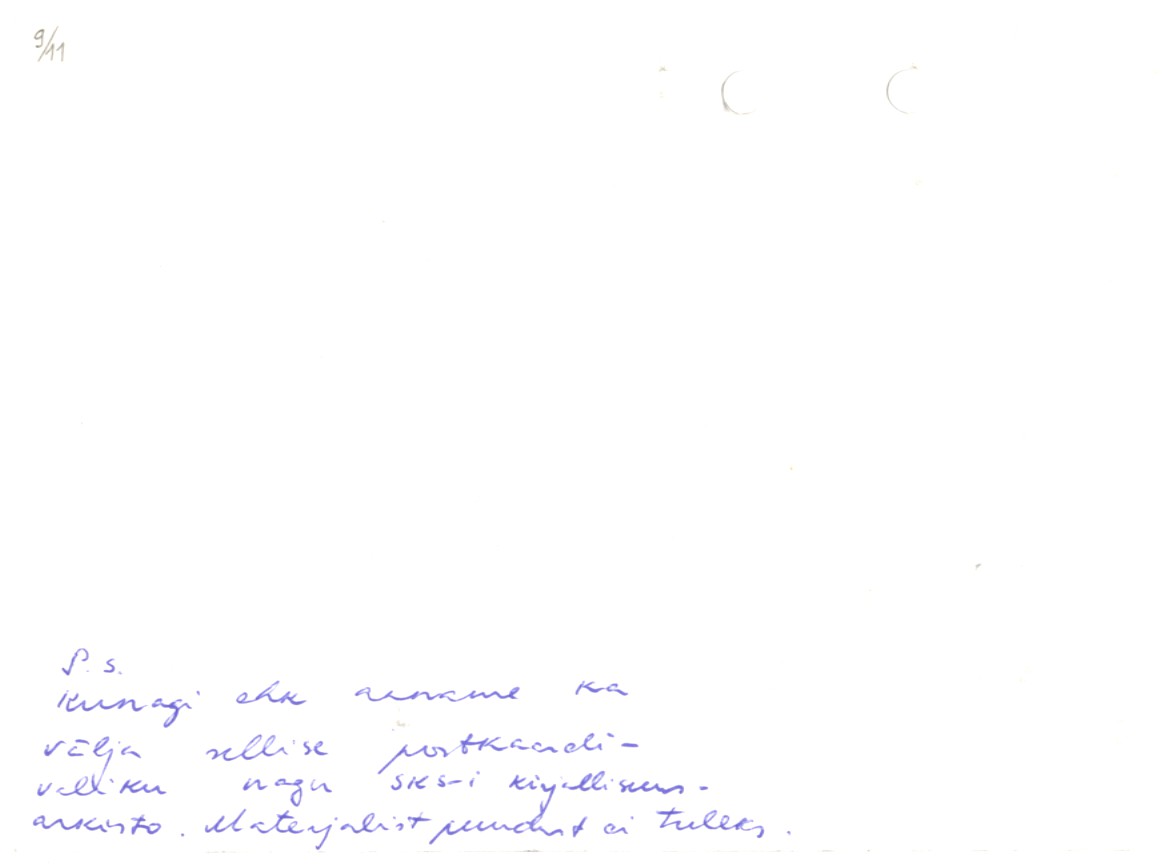 9/11
P.s.
Kunagi ehk anname ka
välja sellise postkaardi-
valiku nagu SKS-i kirjallisuus-
arkisto. Materjalist puudust ei tuleks.